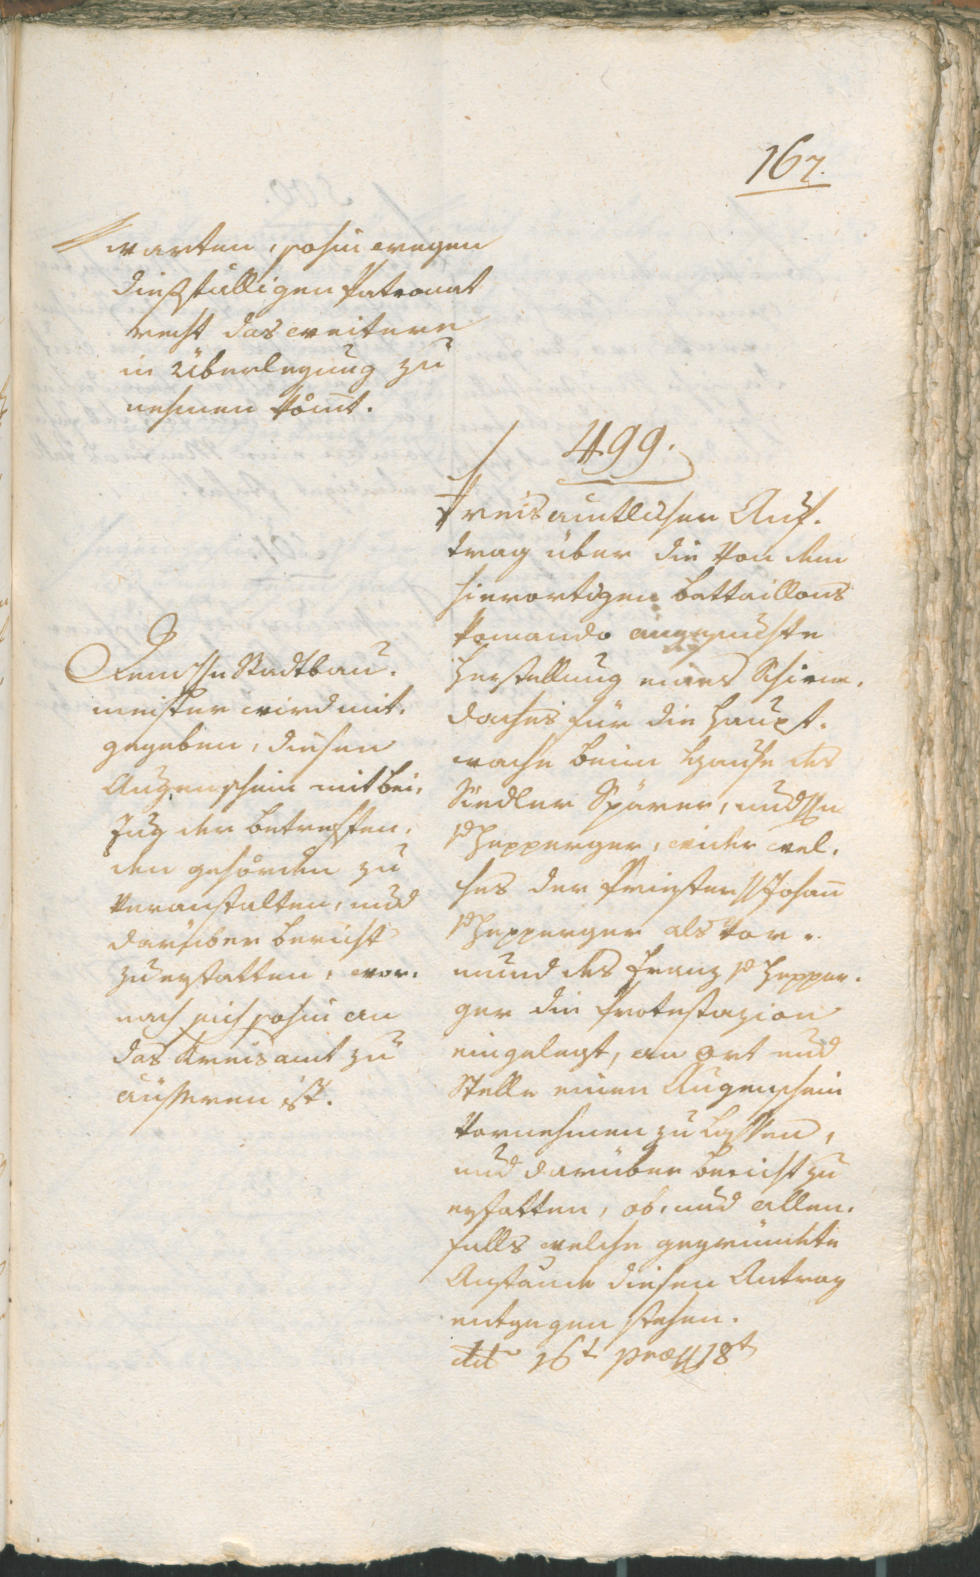 167.
warten, sohin wegen
dießfälligen Patronat
recht das weitere
in Überlegung zu
nehmen kom̅t.
499.
Kreisamtlicher Auf-
trag über die von dem
hierortigen Battaillons
Komando angesuchte
Herstellung eines Schirm-
daches für die Haupt-
wache beim Hause des
Sedler Spärer, und H
v Hepperger, wider wel-
ches der Priester H Johan̅
v Hepperger als Vor-
mund des Franz v Hepper-
ger die Protestazion
eingelegt, an Ort und
Stelle einen Augenschein
vornehmen zu lassen,
und darüber Bericht zu
erstatten, ob, und allen-
falls welche gegründete
Anstände diesen Antrag
entgegen stehen.
ddto 16t praes 18t
Dem H Stadtbau-
meister wird mit-
gegeben, diesen
Augenschein mit Bei-
zug der Betreffen-
den gehörden zu
veranstalten, und
darüber Bericht
zu erstatten, wor-
nach sich sohin an
das Kreisamt zu
äusseren ist.